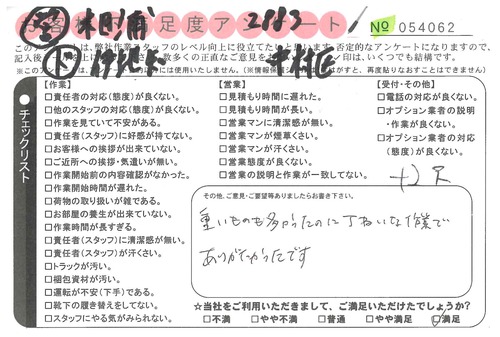 お客様満足度アンケート！
2183
№ 054062
このアンケートは、弊社作業スタッフのレベル向上に役立てたいと思います。否定的なアンケートになりますので、
数多くの正直なご意見を
印は、いくつでも結構です。
チェックリスト
【作業】
□責任者の対応（態度）が良くない。
□他のスタッフの対応（態度）が良くない。
□作業を見ていて不安がある。
□責任者（スタッフ）に好感が持てない。
□お客様への挨拶が出来ていない。
□ご近所への挨拶・気遣いが無い。
□作業開始前の内容確認がなかった。
□作業開始時間が遅れた。
□荷物の取り扱いが雑である。
□お部屋の養生が出来ていない。
□作業時間が長すぎる。
□責任者（スタッフ）に清潔感が無い。
□責任者（スタッフ）が汗くさい。
□トラックが汚い。
□梱包資材が汚い。
□運転が不安（下手）である。
□靴下の履き替えをしてない。
□スタッフにやる気がみられない。
【営業】
□見積もり時間に遅れた。
□見積もり時間が長い。
□営業マンに清潔感が無い。
□営業マンが煙草くさい。
□営業マンが汗くさい。
□営業態度が良くない。
□営業の説明と作業が一致してない。
【受付・その他】
□電話の対応が良くない。
□オプション業者の説明
・作業が良くない。
□オプション業者の対応
（態度）が良くない。
その他、ご意見・ご要望等ありましたらお書き下さい。
重いものも多かったのに丁ねいな作業で
ありがたかったです
☆当社をご利用いただきまして、ご満足いただけたでしょうか？
□不満 □やや不満 □普通 □やや満足 ☑満足